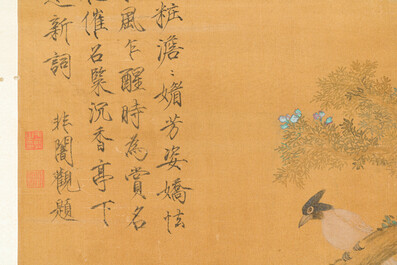 粧澹〻媚芳姿嬌怯
風乍醒時為賞名
催名檠沉香亭下
新詞
非闇觀題